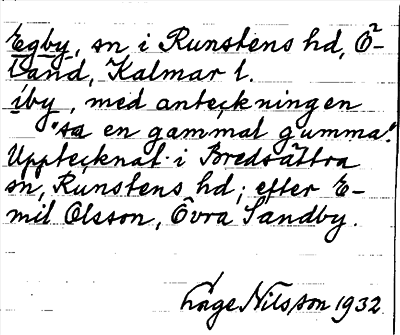 Egby, sn i Runstens hd, Ö-
land, Kalmar l.
íby, med anteckningen
"sa en gammal gumma".
Upptecknat i Bredsättra
sn, Runstens hd; efter E-
mil Olsson, Övra Sandby.
Låge Nilsson 1932